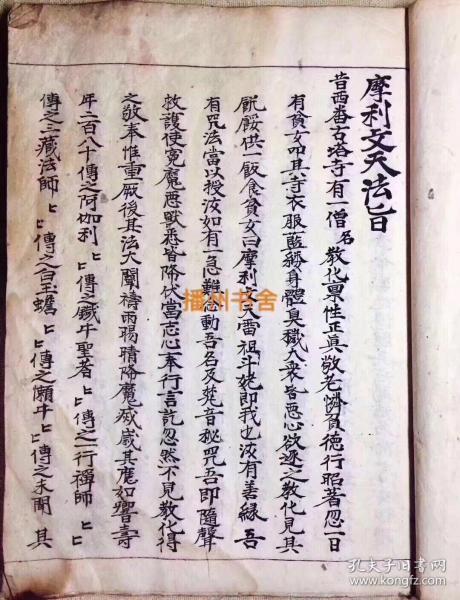 摩利支天法旨
昔西番古塔寺有一僧名教化禀性正真敬老憐貧德行昭著忽一日
有貧女叩其寺衣服藍縷身體臭穢人衆皆惡心欲逐之教化見其
飢餒供一飯食貧女曰摩利支天雷祖斗姥即我也汝有善緣吾
有咒法當以授汝如有一急難但動吾名及梵音秘咒吾即隨聲
救護使冤魔惡獸悉皆降伏當志心奉行言訖忽然不見教化得
之敬奉惟重厥後其法大闡禱雨暘晴降魔滅祟其應如響壽
年二百八十傳之阿伽利〻〻傳之鐵牛聖者〻〻傳之一行禪師〻〻
傳之三藏法師〻〻傳之白玉蟾〻〻傳之懶牛〻〻傳之未聞 其
播州书舍
孔夫子旧书网